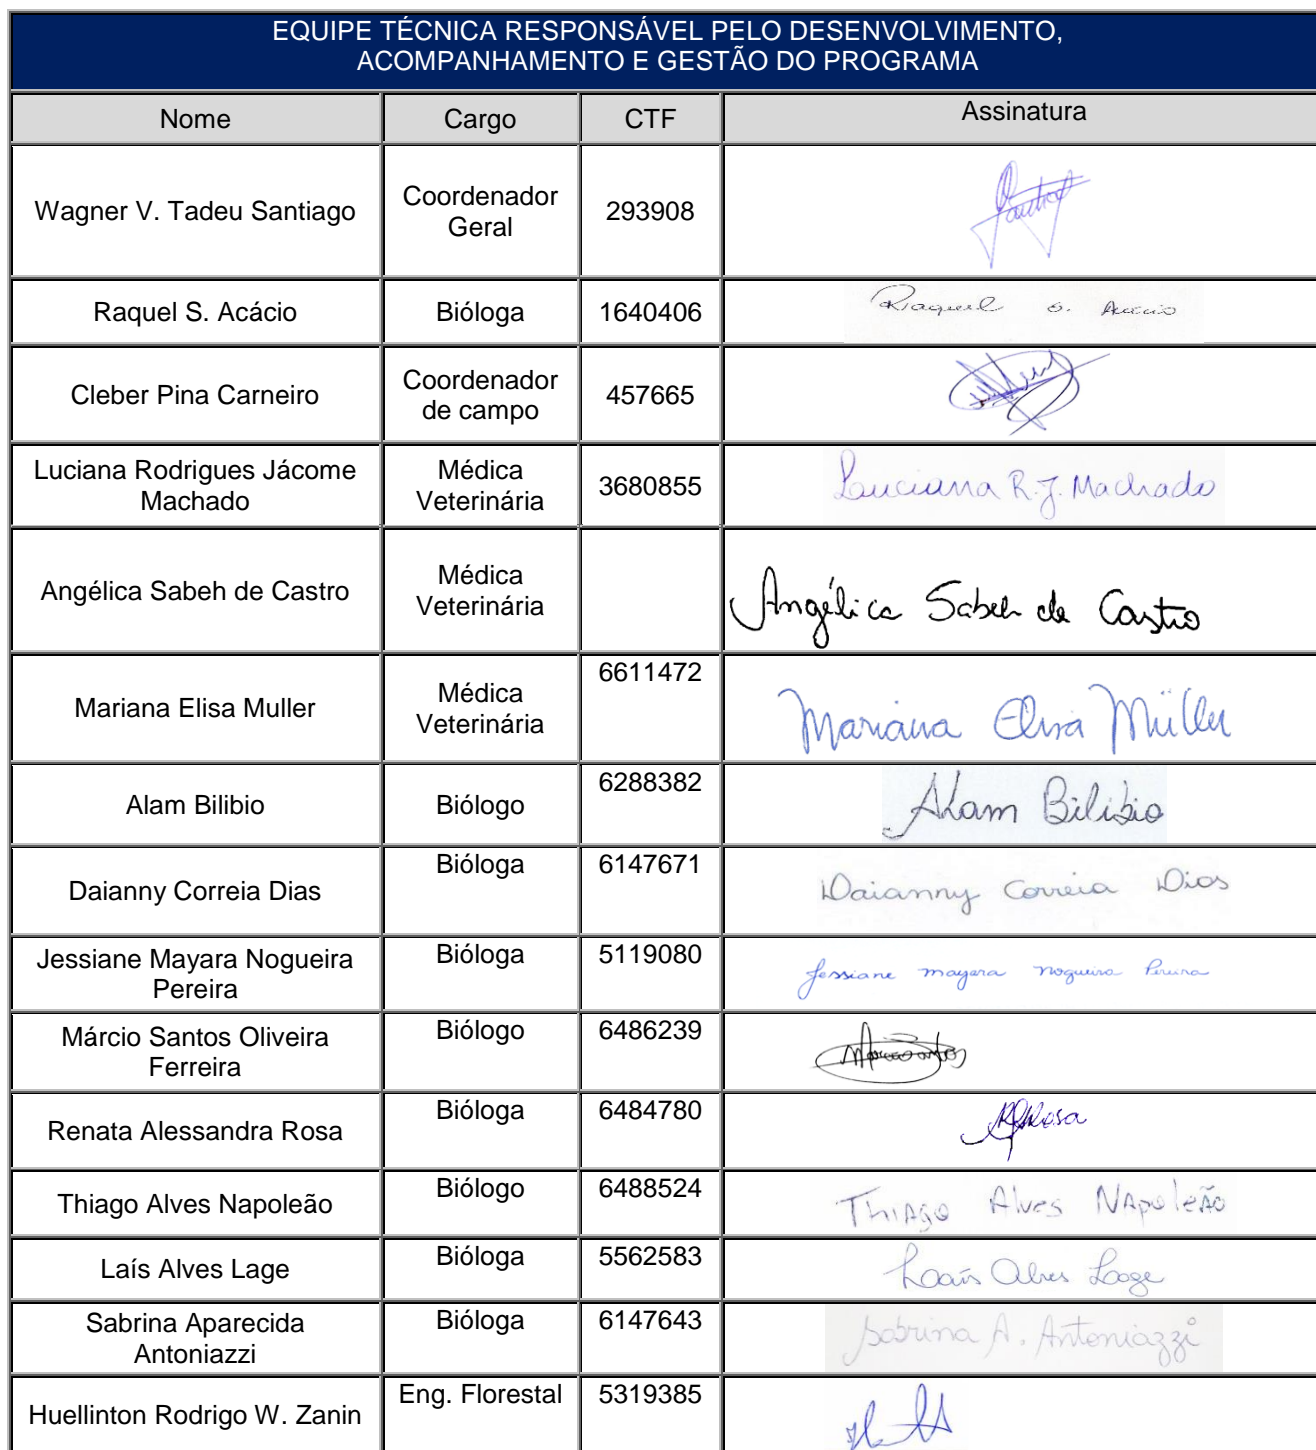 EQUIPE TÉCNICA RESPONSÁVEL PELO DESENVOLVIMENTO,
ACOMPANHAMENTO E GESTÃO DO PROGRAMA
Nome Cargo CTF Assinatura
Wagner V. Tadeu Santiago Coordenador Geral 293908
Raquel S. Acácio Bióloga 1640406 Raquel S. Acácio
Cleber Pina Carneiro Coordenador de campo 457665
Luciana Rodrigues Jácome Machado Médica Veterinária 3680855 Luciana R. J. Machado
Angélica Sabeh de Castro Médica Veterinária Angélica Sabeh de Castro
Mariana Elisa Muller Médica Veterinária 6611472 Mariana Elisa Müller
Alam Bilibio Biólogo 6288382 Alam Bilibio
Daianny Correia Dias Bióloga 6147671 Daianny Correia Dias
Jessiane Mayara Nogueira Pereira Bióloga 5119080 Jessiane Mayara Nogueira Pereira
Márcio Santos Oliveira Ferreira Biólogo 6486239
Renata Alessandra Rosa Bióloga 6484780
Thiago Alves Napoleão Biólogo 6488524 Thiago Alves Napoleão
Laís Alves Lage Bióloga 5562583 Laís Alves Lage
Sabrina Aparecida Antoniazzi Bióloga 6147643 Sabrina A. Antoniazzi
Huellinton Rodrigo W. Zanin Eng. Florestal 5319385